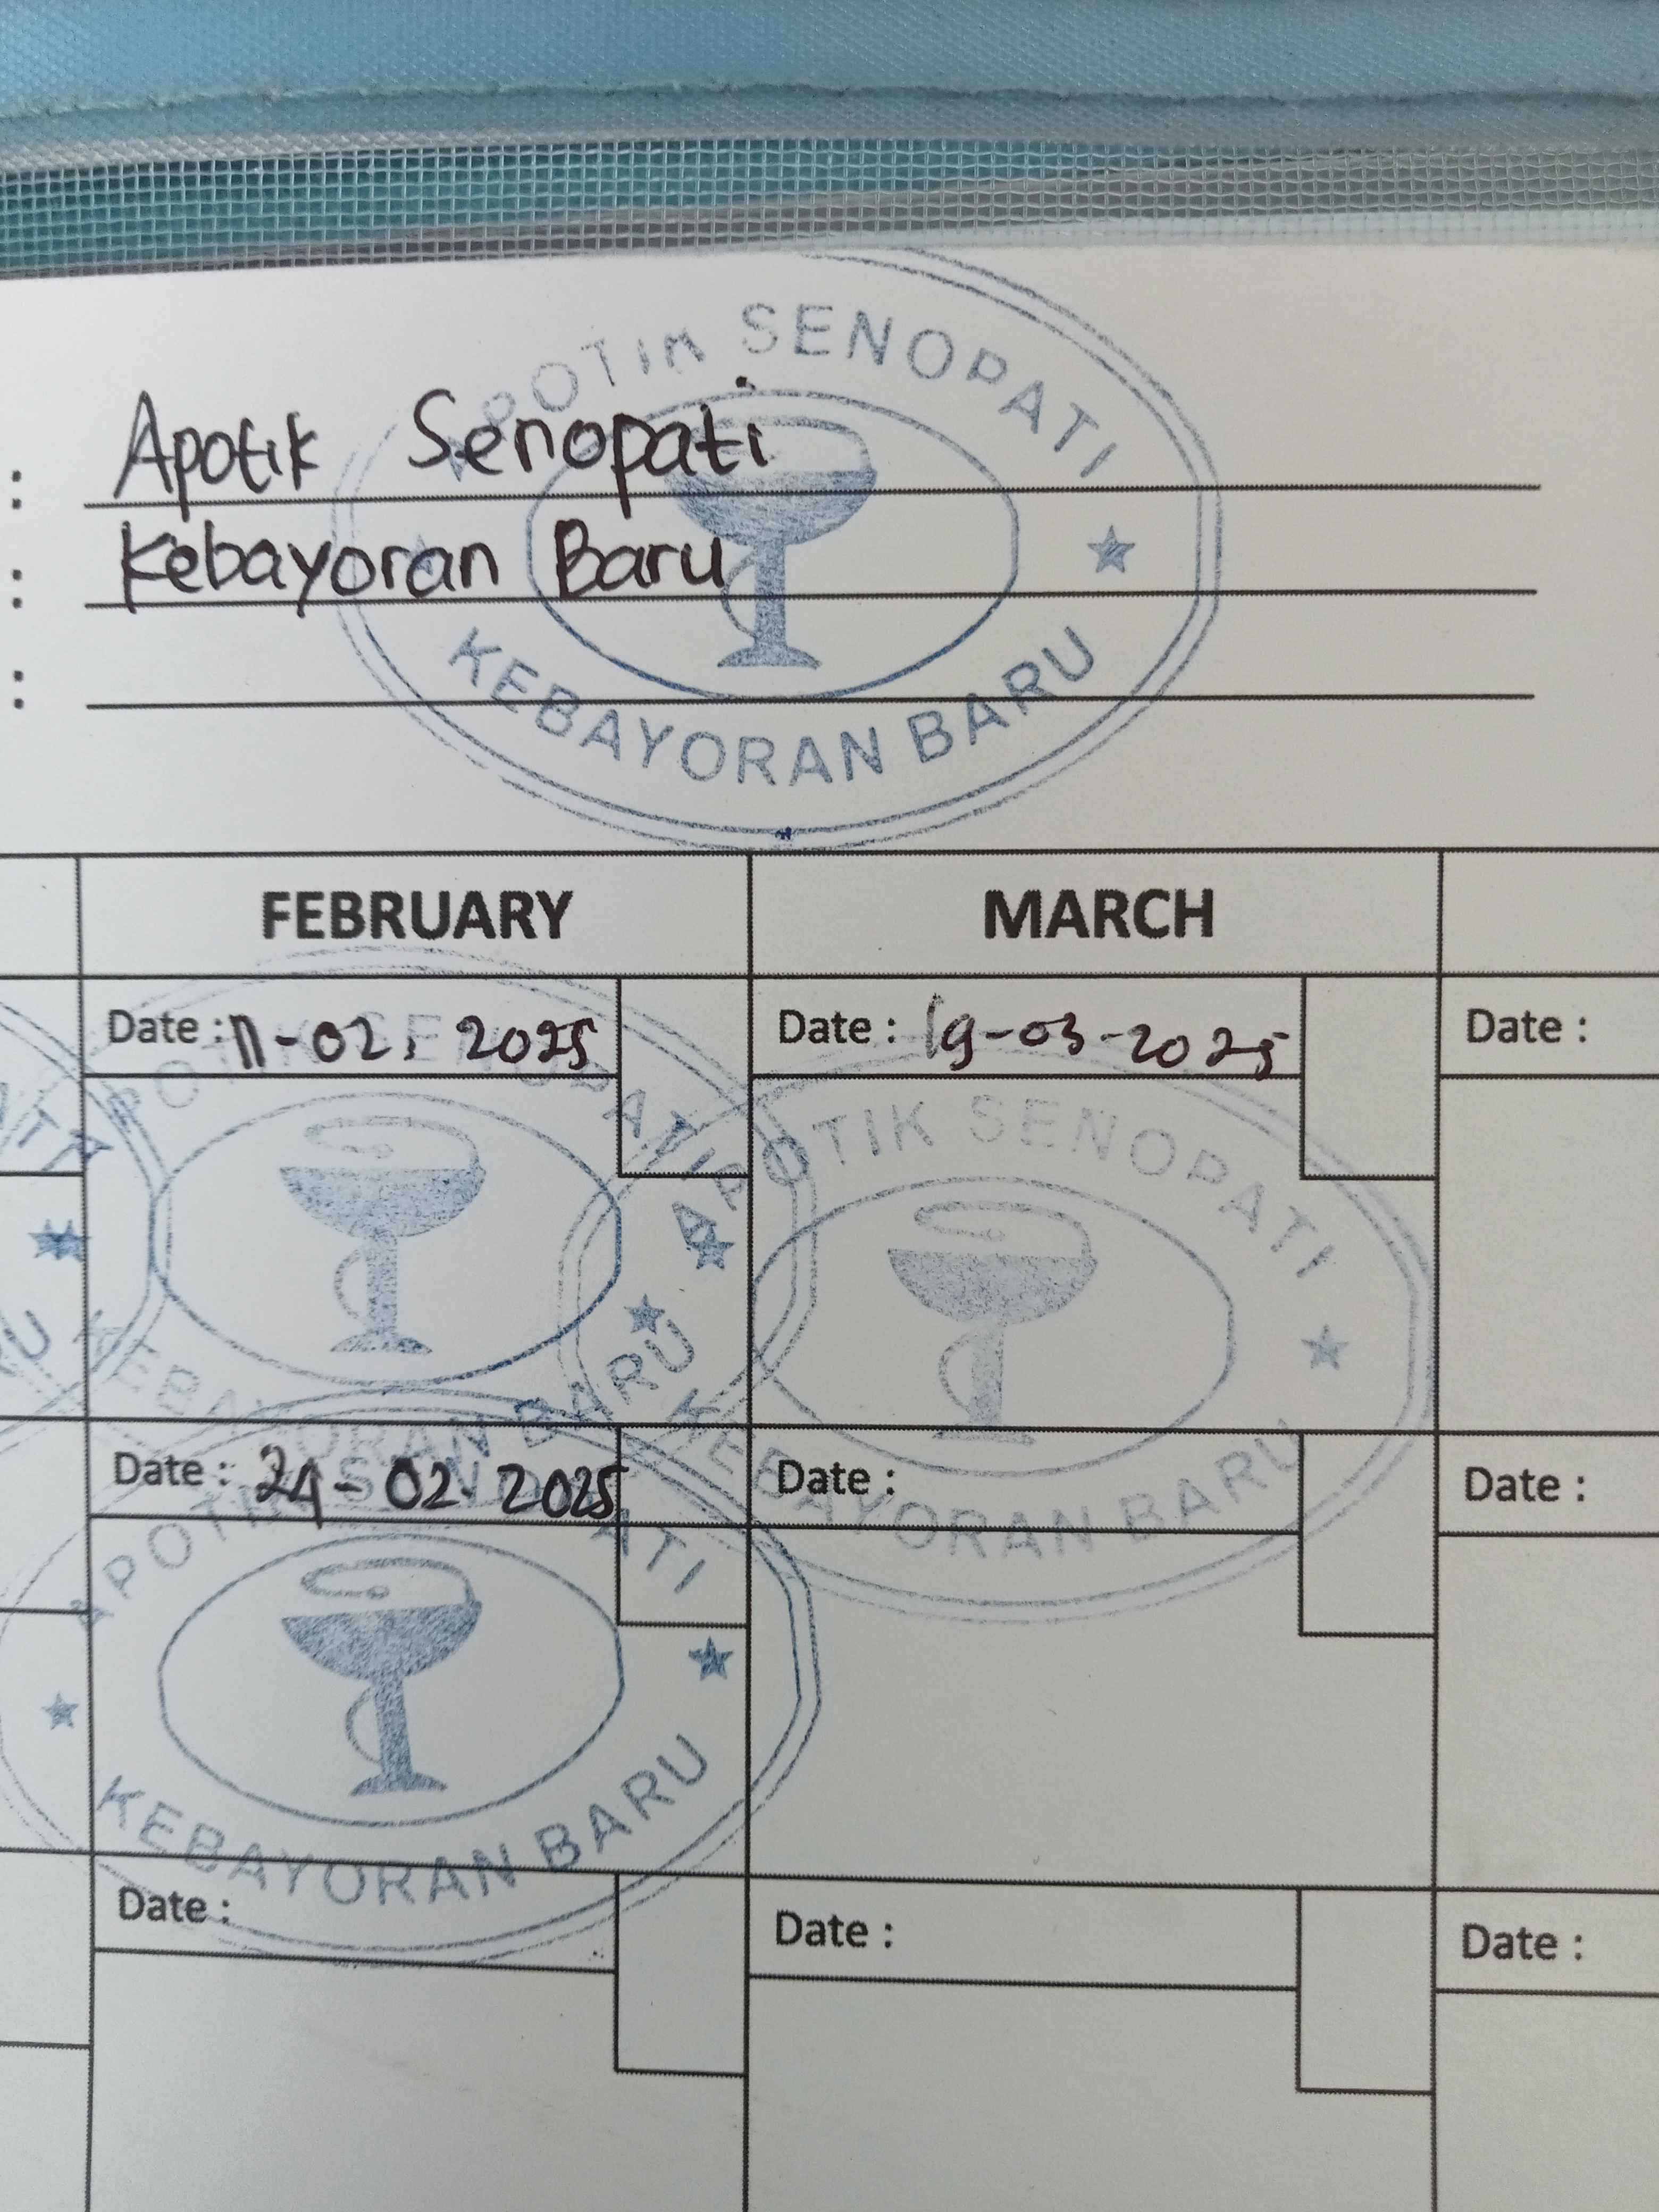 APOTIK SENOPATI
: Apotik Senopati
: Kebayoran Baru
:
KEBAYORAN BARU
FEBRUARY MARCH
Date : 11-02. 2025 Date : 19-03-2025 Date :
APOTIK SENOPATI APOTIK SENOPATI
KEBAYORAN BARU KEBAYORAN BARU
Date : 24-02-2025 Date : Date :
APOTIK SENOPATI
KEBAYORAN BARU
Date : Date : Date :